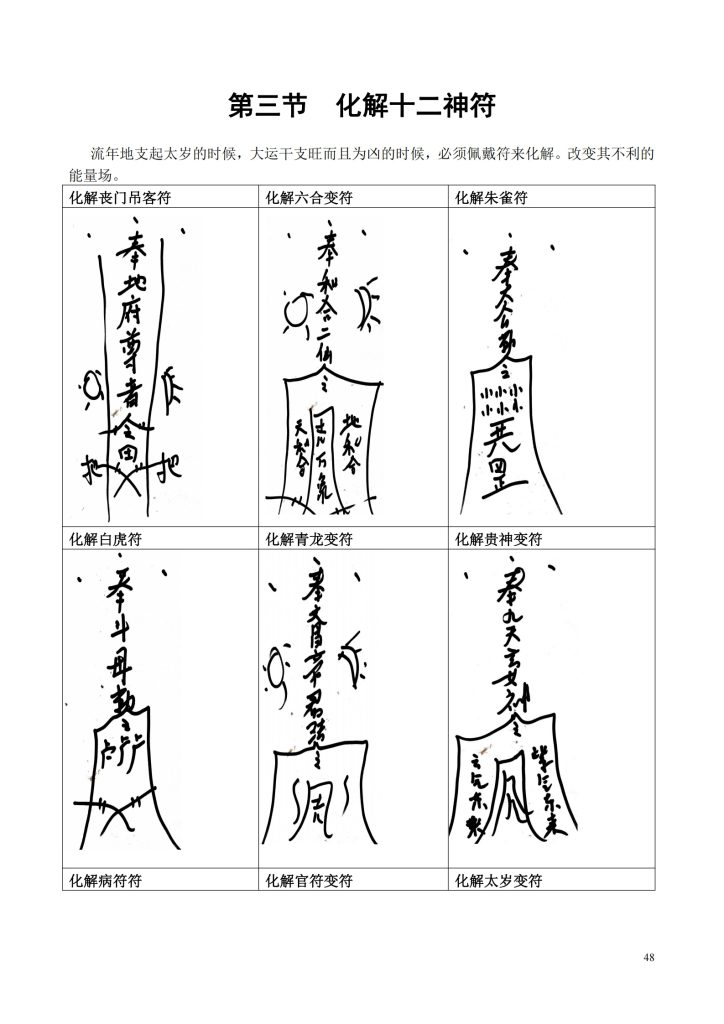 第三节 化解十二神符
流年地支起太岁的时候，大运干支旺而且为凶的时候，必须佩戴符来化解。改变其不利的
能量场。
化解丧门吊客符
化解六合变符
化解朱雀符
奉地府尊者令田
把
把
奉和合二仙
之
地和合
天和合
奉
之
小小小
小小小
四正
化解白虎符
化解青龙变符
化解贵神变符
奉斗母勅
之
奉文昌帝君
之
奉九天玄女神
之
化解病符符
化解官符变符
化解太岁变符
48